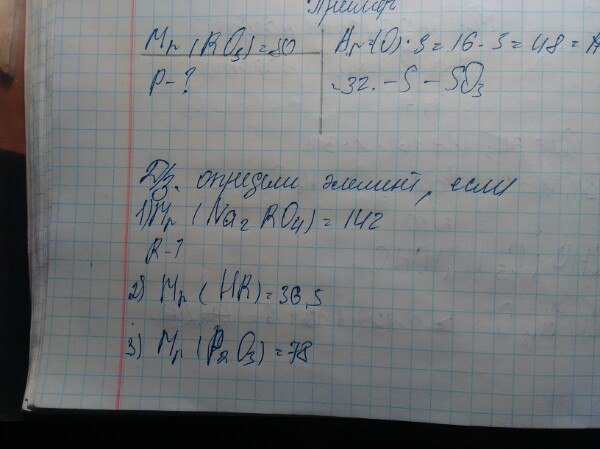 Пример
Mr (RO3) = 80
Ar (O) · 3 = 16 · 3 = 48 = A
R - ?
= 32. - S - SO3
Дз. определи элемент, если
1) Mr (Na2RO4) = 142
R - ?
2) Mr (HR) = 36,5
3) Mr (P2O3) = 78